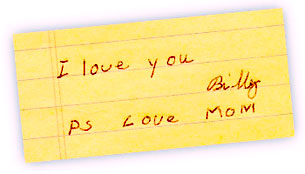 I love you
Billy
PS Love MOM